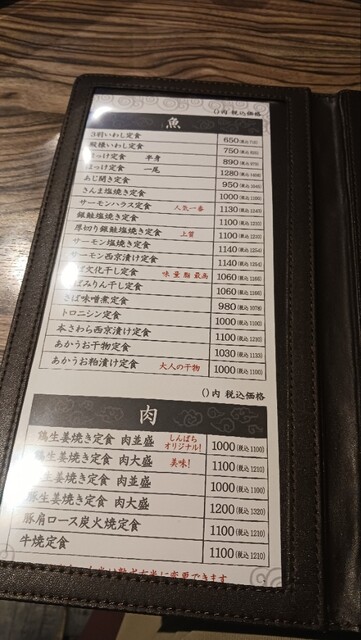 ()内 税込価格
魚
3羽いわし定食 650(税込715)
殿様いわし定食 750(税込825)
ほっけ定食 半身 890(税込979)
ほっけ定食 一尾 1280(税込1408)
あじ開き定食 950(税込1045)
さんま塩焼き定食 1000(税込1100)
サーモンハラス定食 人気一番 1130(税込1243)
銀鮭塩焼き定食 1100(税込1210)
厚切り銀鮭塩焼き定食 上質 1100(税込1210)
サーモン塩焼き定食 1140(税込1254)
サーモン西京漬け定食 1140(税込1254)
文化干し定食 味 量 脂 最高 1060(税込1166)
さばみりん干し定食 1060(税込1166)
さば味噌煮定食 980(税込1078)
トロニシン定食 1000(税込1100)
本さわら西京漬け定食 1100(税込1210)
あかうお干物定食 1030(税込1133)
あかうお粕漬け定食 大人の干物 1000(税込1100)
()内 税込価格
肉
鶏生姜焼き定食 肉並盛 しんぱち オリジナル! 1000(税込1100)
鶏生姜焼き定食 肉大盛 美味! 1100(税込1210)
豚生姜焼き定食 肉並盛 1000(税込1100)
豚生姜焼き定食 肉大盛 1200(税込1320)
豚肩ロース炭火焼定食 1100(税込1210)
牛焼定食 1100(税込1210)
に変更できます